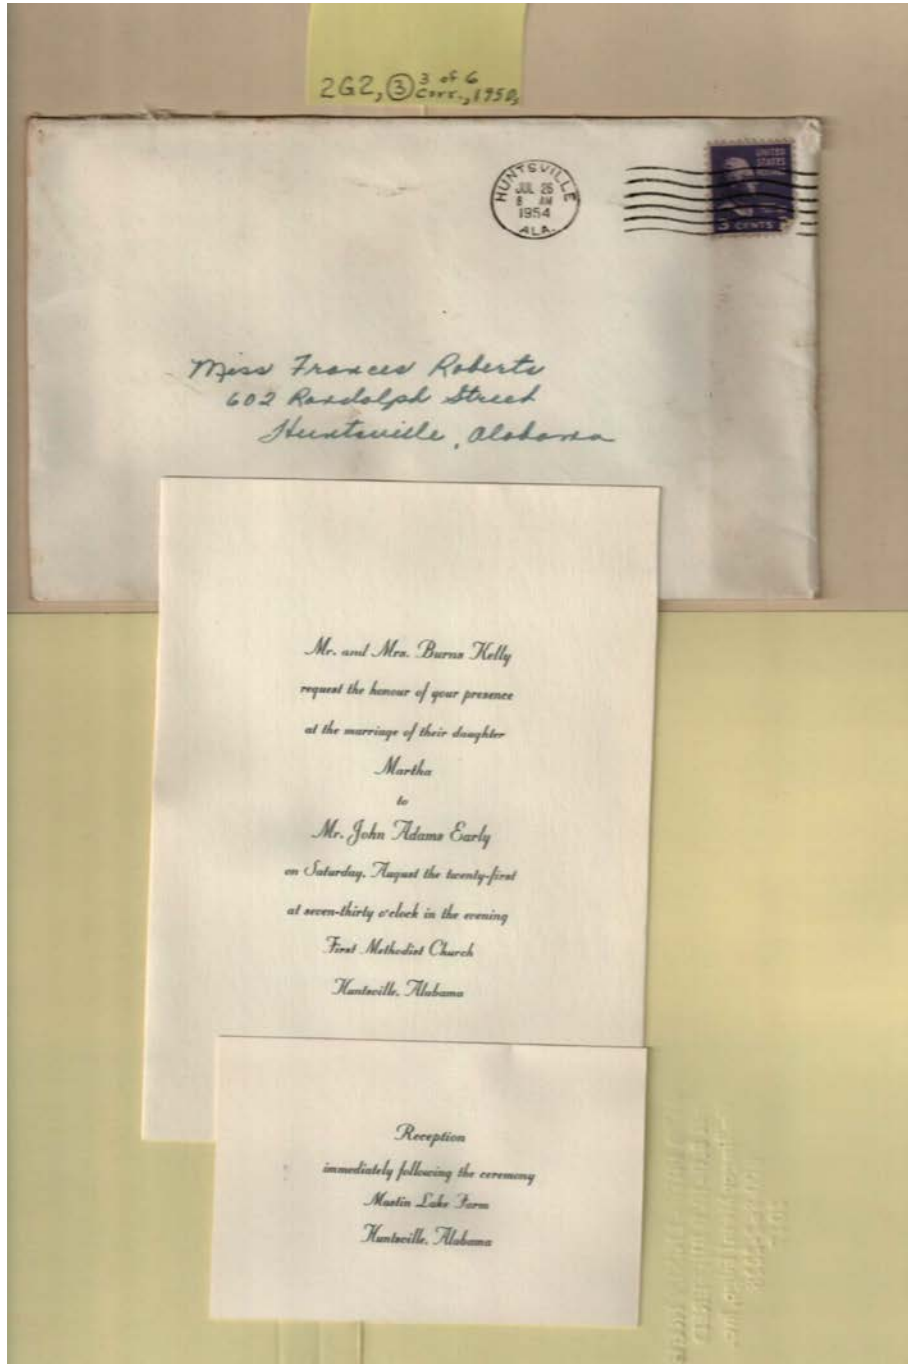 2G2, ③ 3 of 6
Corr., 1950s
HUNTSVILLE
JUL 26
8 AM
1954
ALA.
UNITED
STATES
3 CENTS
Miss Frances Roberts
602 Randolph Street
Huntsville, Alabama
Mr. and Mrs. Burns Kelly
request the honour of your presence
at the marriage of their daughter
Martha
to
Mr. John Adams Early
on Saturday, August the twenty-first
at seven-thirty o'clock in the evening
First Methodist Church
Huntsville, Alabama
Reception
immediately following the ceremony
Mustin Lake Farm
Huntsville, Alabama